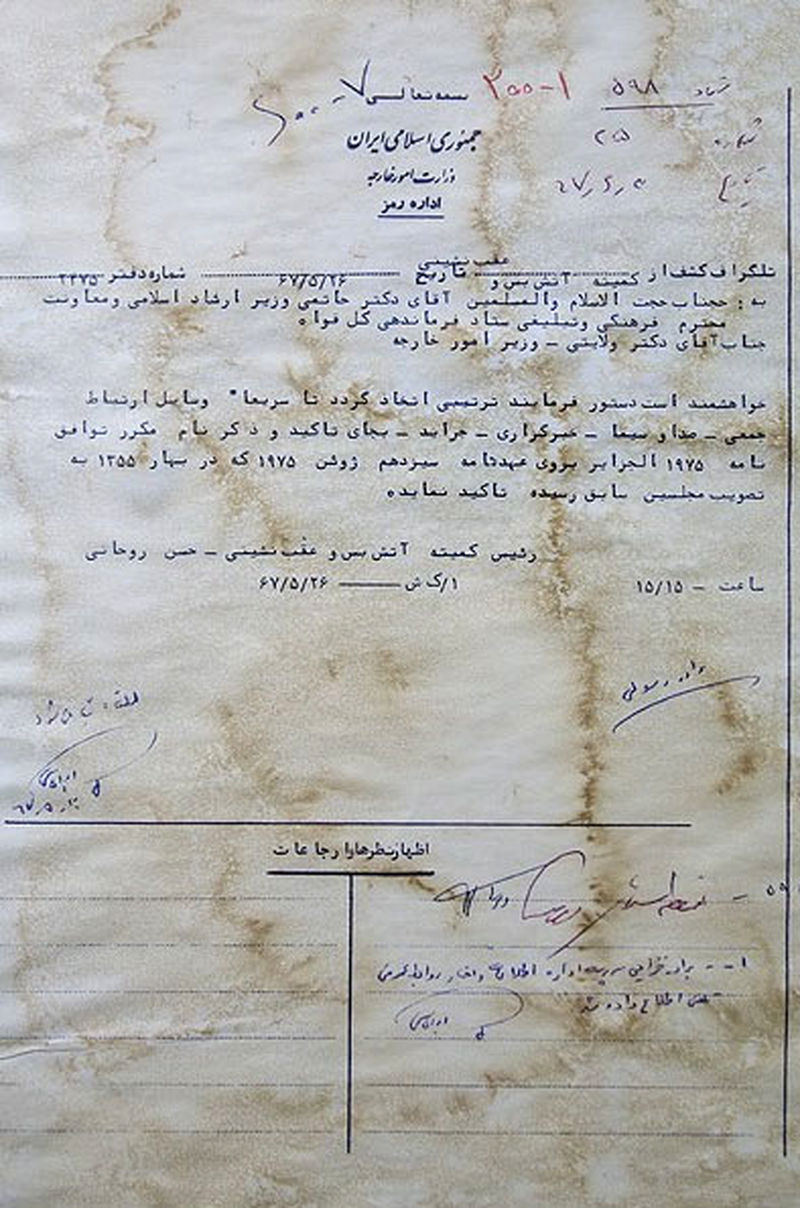 ۵۹۸ ۲۰۰-۱ بسمه تعالی
شماره ۲۵ جمهوری اسلامی ایران
تاریخ وزارت امور خارجه
اداره رمز
تلگراف کشف از کمیته آتش بس و عقب نشینی تاریخ ۶۷/۵/۲۶ شماره دفتر ۲۲۷۵
به : جناب حجت الاسلام والمسلمین آقای دکتر خاتمی وزیر ارشاد اسلامی ومعاونت
محترم فرهنگی وتبلیغی ستاد فرماندهی کل قواه
جناب آقای دکتر ولایتی - وزیر امور خارجه
خواهشمند است دستور فرمایند ترتیبی اتخاذ گردد تا سریعا" وسایل ارتباط
جمعی - صدا و سیما - خبرگزاری - جراید - بجای تاکید و ذکر نام مکرر توافق
نامه ۱۹۷۵ الجزایر بروی عهدنامه سیزدهم ژوئن ۱۹۷۵ که در بهار ۱۳۵۵ به
تصویب مجلسین سابق رسیده تاکید نمایند
رئیس کمیته آتش بس و عقب نشینی - حسن روحانی
ساعت - ۱۵/۱۵ ۱/ک ش ــــــ ۶۷/۵/۲۶
برادر رسولی
اظهارنظرها وا رجا عا ت
اطلاع داده شد